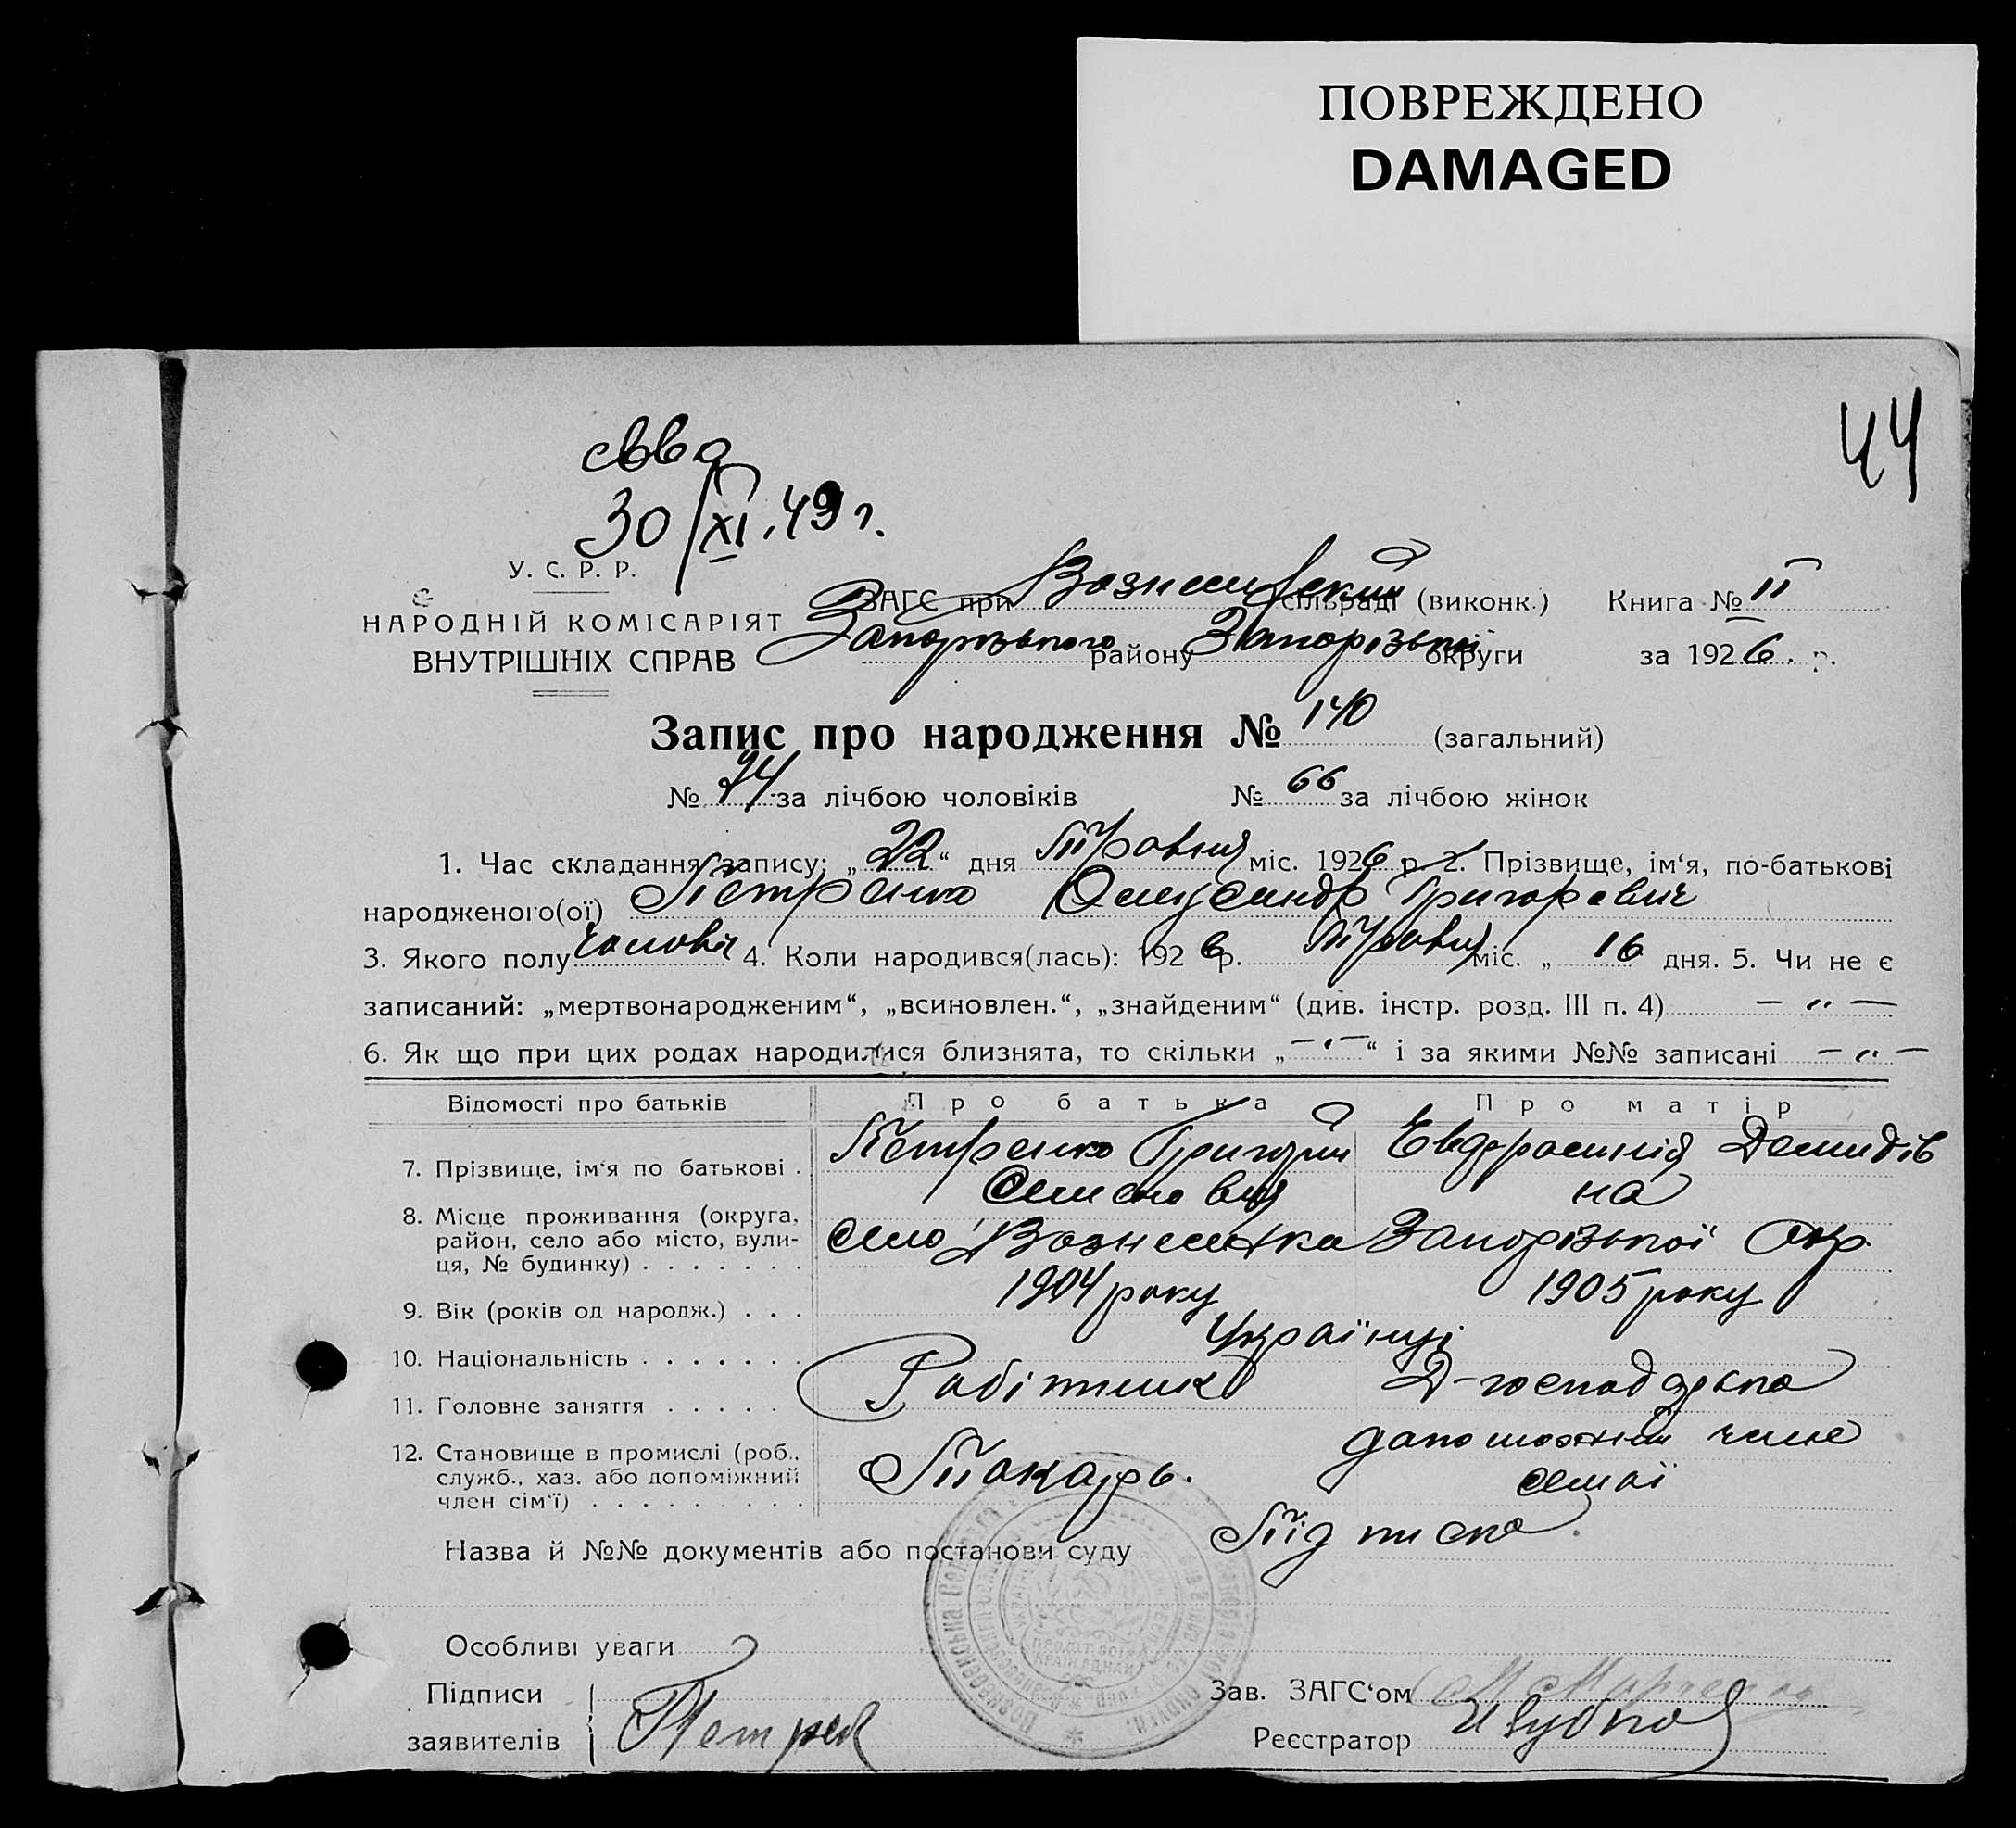 ПОВРЕЖДЕНО
DAMAGED
44
30/XI.49 г.
У. С. Р. Р.
НАРОДНІЙ КОМІСАРІЯТ
ВНУТРІШНІХ СПРАВ
ЗАГС при Вознесенський сільраді (виконк.) Книга № II
Запорізького району Запорізької округи за 1926 р.
Запис про народження № 140 (загальний)
№ 74 за лічбою чоловіків № 66 за лічбою жінок
1. Час складання запису: „22“ дня Травня міс. 1926 р. 2. Прізвище, ім‘я, по-батькові
народженого(ої) Петренко Олександр Григорович
3. Якого полу чоловіч 4. Коли народився(лась): 1926 р. Травня міс. „ 16 дня. 5. Чи не є
записаний: „мертвонародженим“, „всиновлен.“, „знайденим“ (див. інстр. розд. III п. 4) — „ —
6. Як що при цих родах народилися близнята, то скільки „—„—“ і за якими №№ записані — „ —
Відомості про батьків Про батька Про матір
7. Прізвище, ім‘я по батькові . Петренко Григорий Евдфросинія Демидів
Семенович на
8. Місце проживання (округа,
район, село або місто, вули-
ця, № будинку) . . . . . . . село Вознесенка Запорізької Окр.
9. Вік (років од народж.) . . . 1904 року 1905 року
10. Національність . . . . . . . Українці
11. Головне заняття . . . . . Робітник Д-господарка
12. Становище в промислі (роб.,
служб., хаз. або допоміжний
член сім‘ї) . . . . . . . . . Токарь. допоможний член
семьї
Назва й №№ документів або постанови суду Підписка
Особливі уваги
Підписи
заявителів Петрен
Зав. ЗАГС‘ом
Реєстратор